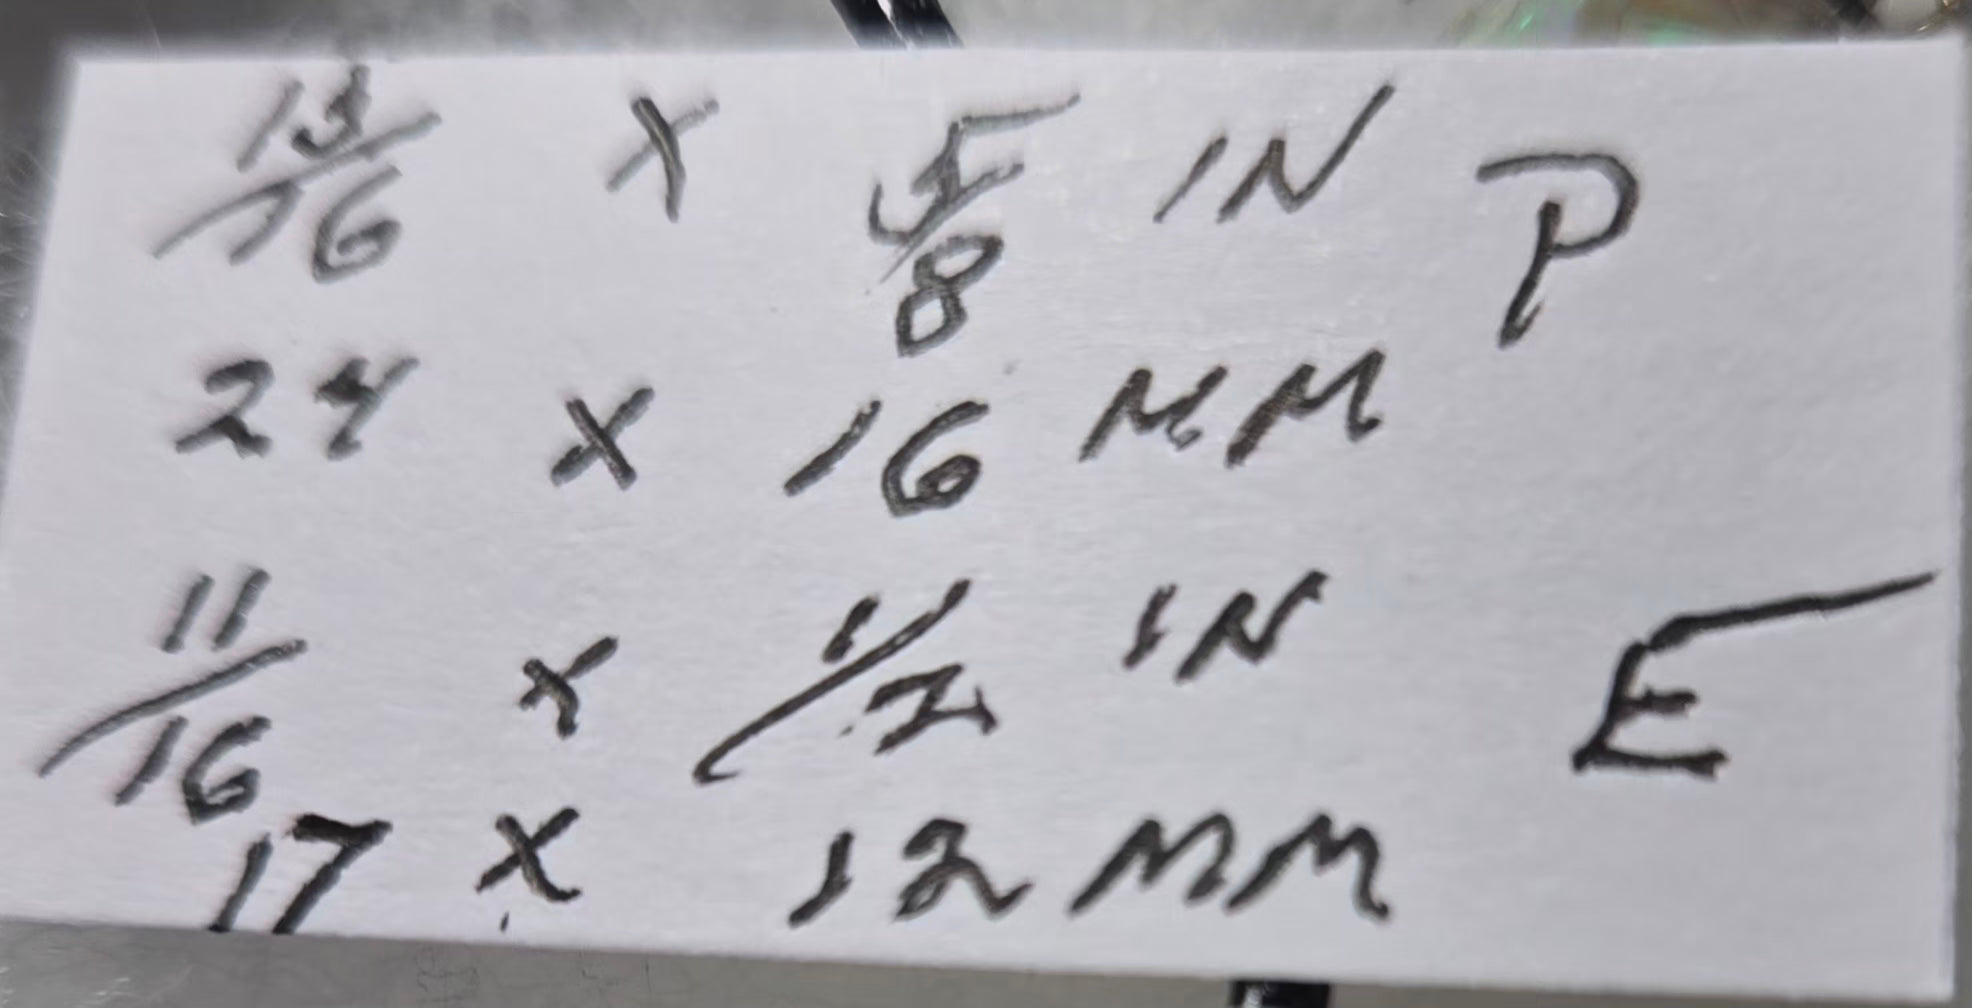 15/16 X 5/8 IN P
24 X 16 MM
11/16 X 1/2 IN E
17 X 12 MM